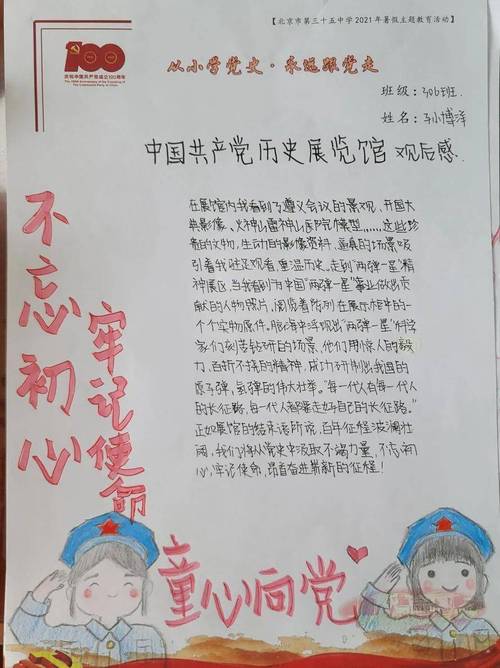 【北京市第三十五中学2021年暑假主题教育活动】
100
庆祝中国共产党成立100周年
The 100th Anniversary of the Founding of
The Communist Party of China
从小学党史·永远跟党走
班级：306班
姓名：孙博泽
中国共产党历史展览馆 观后感
在展馆内我看到了遵义会议的景观、开国大
典影像、火神山雷神山医院模型......这些珍
藏的文物，生动的影像资料，逼真的场景吸
引着我驻足观看，重温历史。走到“两弹一星”精
神展区，当我看到为中国“两弹一星”事业做出贡
献的人物照片，阅览着陈列在展示柜中的一
个个实物原件，脑海中浮现出“两弹一星”科学
家们刻苦钻研的场景，他们用惊人的毅
力，百折不挠的精神，成功研制出我国的
原子弹，氢弹的伟大壮举。“每一代人有每一代人
的长征路，每一代人都要走好自己的长征路。”
正如展馆的结束语所说，百年征程波澜壮
阔，我们将从党史中汲取不竭力量，不忘初
心牢记使命，昂首奋进崭新的征程！
不忘初心
牢记使命
童心向党